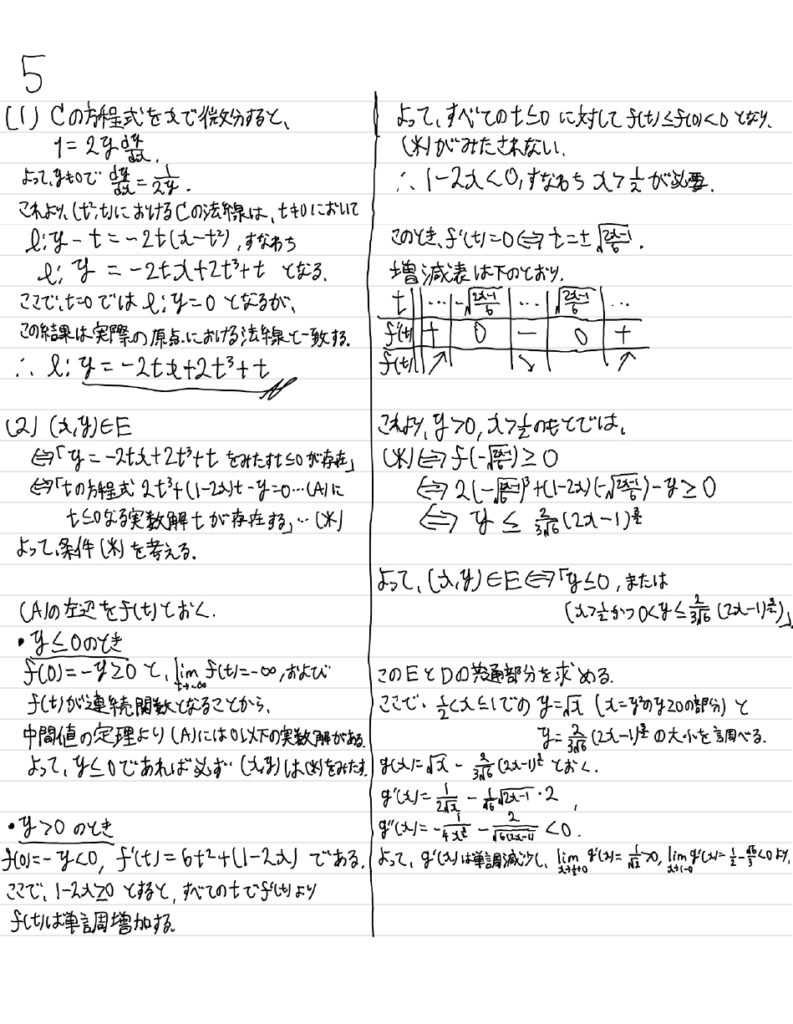 5
(1) Cの方程式をxで微分すると、
1 = 2y dy/dx.
よって、y≠0で dy/dx = 1/2y.
これより、(t²,t)におけるCの法線は、t≠0において
l: y - t = -2t(x-t²), すなわち
l: y = -2tx+2t³+t となる.
ここで、t=0では l: y=0 となるが、
この結果は実際の原点における法線と一致する.
∴ l: y = -2tx+2t³+t
(2) (x,y)∈E
⇔「y = -2tx+2t³+t をみたすt≤0が存在」
⇔「tの方程式 2t³+(1-2x)t-y=0…(A)に
t≤0なる実数解tが存在する」…(※)
よって、条件(※)を考える.
(A)の左辺をf(t)とおく.
・y≤0のとき
f(0)=-y≥0と、lim_{t→-∞} f(t)=-∞, および
f(t)が連続関数となることから、
中間値の定理より(A)には0以下の実数解がある.
よって、y≤0であれば必ず(x,y)は(※)をみたす.
・y>0のとき
f(0)=-y<0, f'(t)=6t²+(1-2x) である.
ここで、1-2x≥0 とすると、すべてのtでf'(t)より
f(t)は単調増加する.
よって、すべてのt≤0に対してf(t)≤f(0)<0となり、
(※)がみたされない.
∴ 1-2x<0, すなわち x>1/2 が必要.
このとき、f'(t)=0⇔t=±√((2x-1)/6).
増減表は下のとおり.
t | … | -√((2x-1)/6) | … | √((2x-1)/6) | …
f'(t) | + | 0 | - | 0 | +
f(t) | ↗ | | ↘ | | ↗
これより、y>0, x>1/2のもとでは、
(※)⇔f(-√((2x-1)/6))≥0
⇔ 2(-√((2x-1)/6))³+(1-2x)(-√((2x-1)/6))-y≥0
⇔ y ≤ 2/(3√6) (2x-1)^{3/2}
よって、(x,y)∈E⇔「y≤0, または
(x>1/2かつ0<y≤2/(3√6) (2x-1)^{3/2})」
このEとDの共通部分を求める.
ここで、1/2<x≤1での y=√x (x=y²のy≥0の部分)と
y=2/(3√6) (2x-1)^{3/2} の大小を調べる.
g(x)=√x - 2/(3√6) (2x-1)^{3/2} とおく.
g'(x)=1/(2√x) - 1/√6 √(2x-1)・2,
g''(x)=-1/(4x^{3/2}) - 2/√(6(2x-1)) <0.
よって、g'(x)は単調減少し、lim_{x→1/2+0} g'(x)=1/√2>0, lim_{x→1-0} g'(x)=1/2-√6/3<0より、